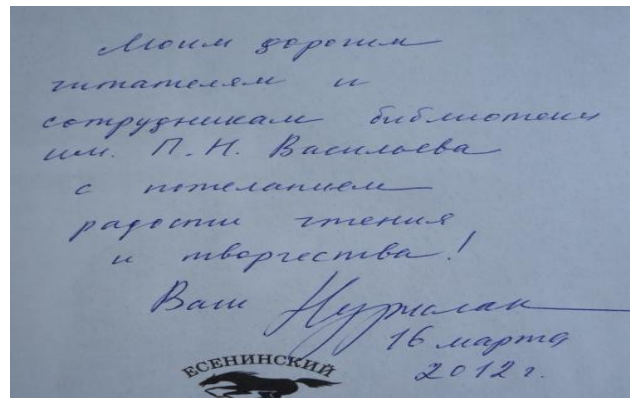 Моим дорогим
читателям и
сотрудникам библиотеки
им. П. Н. Васильева
с пожеланием
радости чтения
и творчества!
Ваш
16 марта
2012 г.
ЕСЕНИНСКИЙ